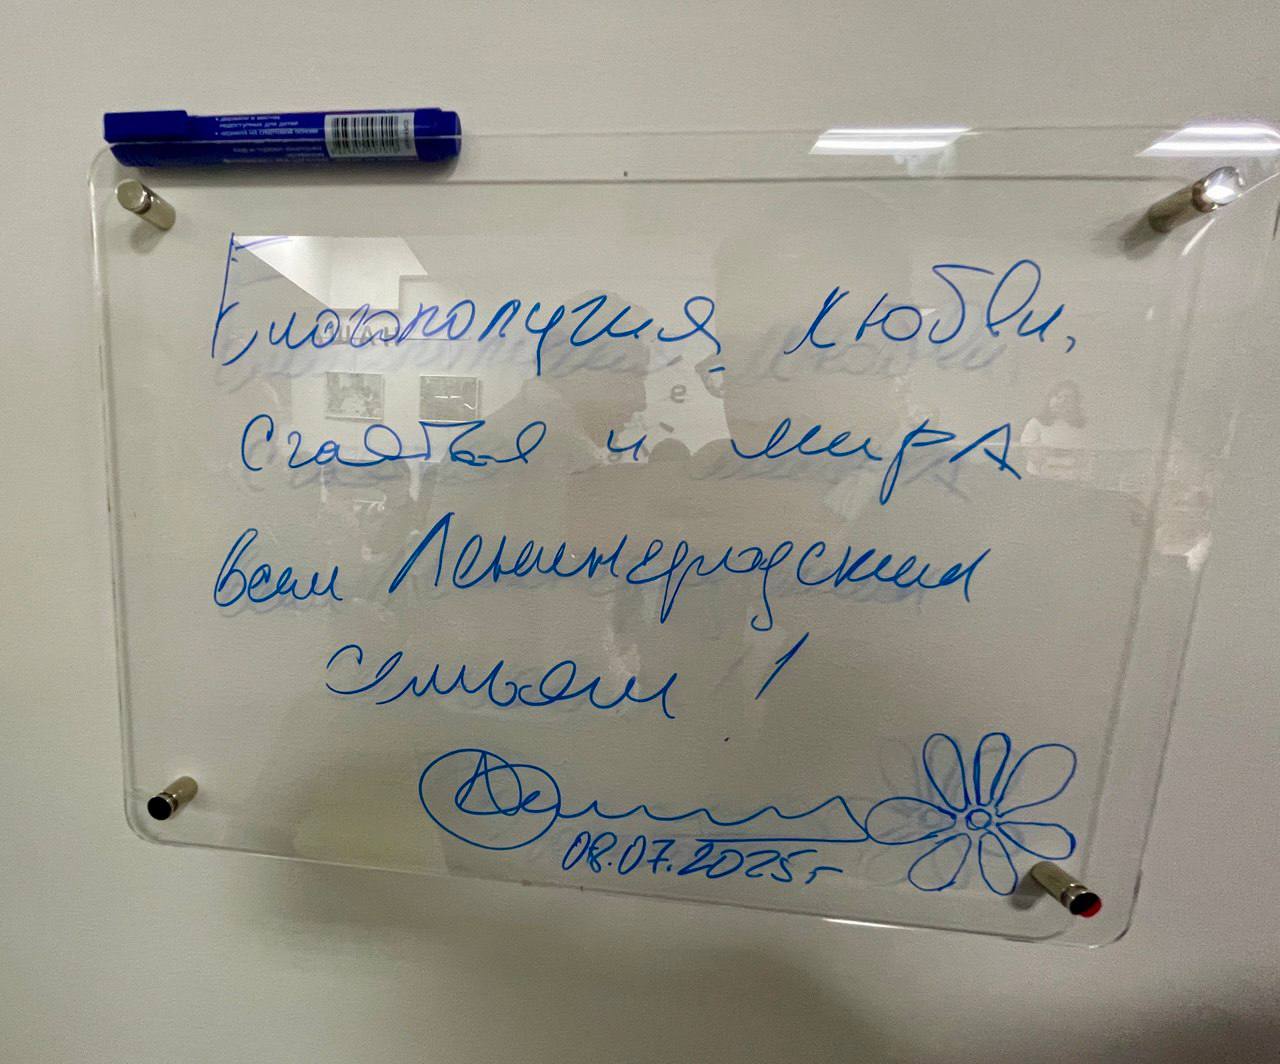 Благополучия, любви,
счастья и мира
всем Ленинградским
семьям!
08.07.2025г